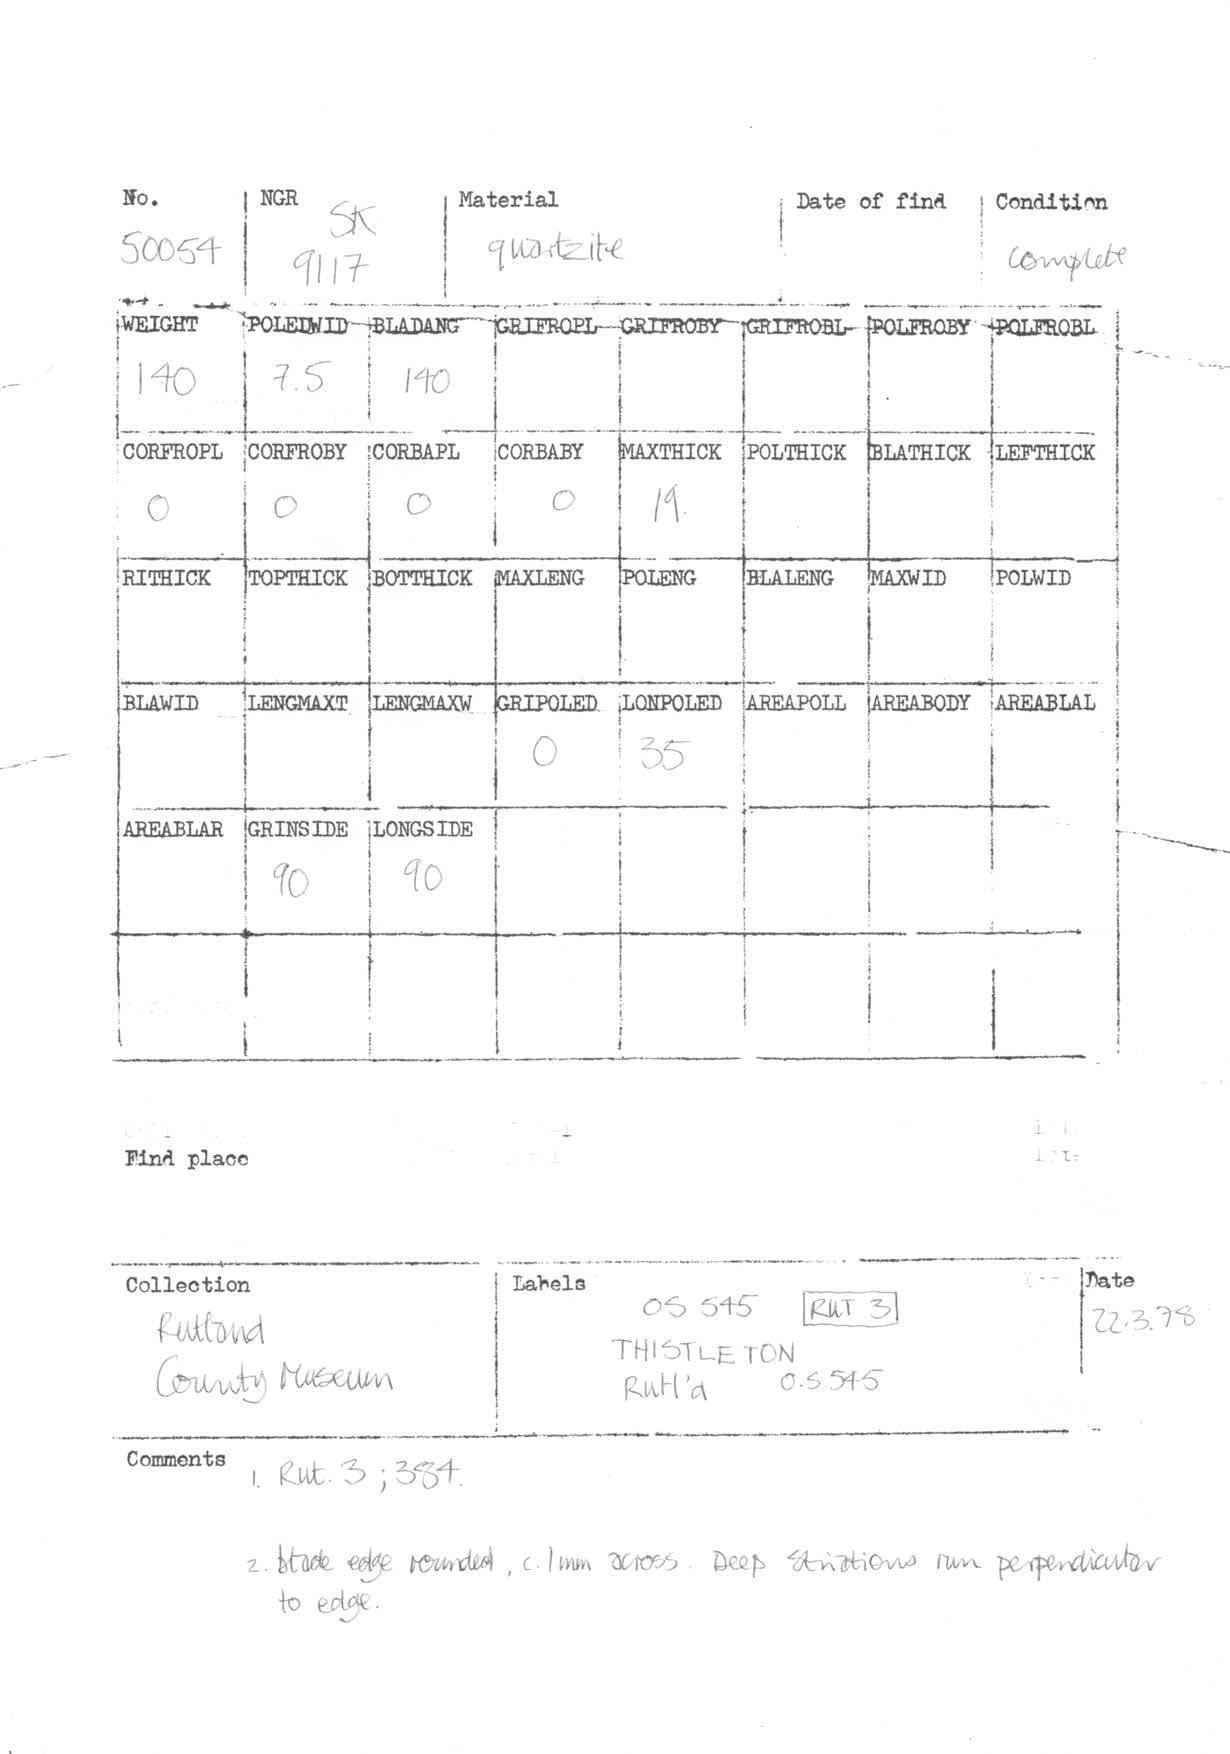 No. NGR Material Date of find Condition
50054 SK 9117 quartzite complete
WEIGHT POLEDWID BLADANG GRIFROPL GRIFROBY GRIFROBL POLFROBY POLFROBL
140 7.5 140
CORFROPL CORFROBY CORBAPL CORBABY MAXTHICK POLTHICK BLATHICK LEFTHICK
0 0 0 0 19.
RITHICK TOPTHICK BOTTHICK MAXLENG POLENG BLALENG MAXWID POLWID
BLAWID LENGMAXT LENGMAXW GRIPOLED LONPOLED AREAPOLL AREABODY AREABLAL
0 35
AREABLAR GRINSIDE LONGSIDE
90 90
Find place
Collection Labels Date
OS 545 RUT 3 22.3.78
Rutland THISTLETON
County Museum Rutl'd O.S.545
Comments 1. Rut. 3 ; 384.
2. blade edge rounded, c. 1mm across. Deep striations run perpendicular
to edge.